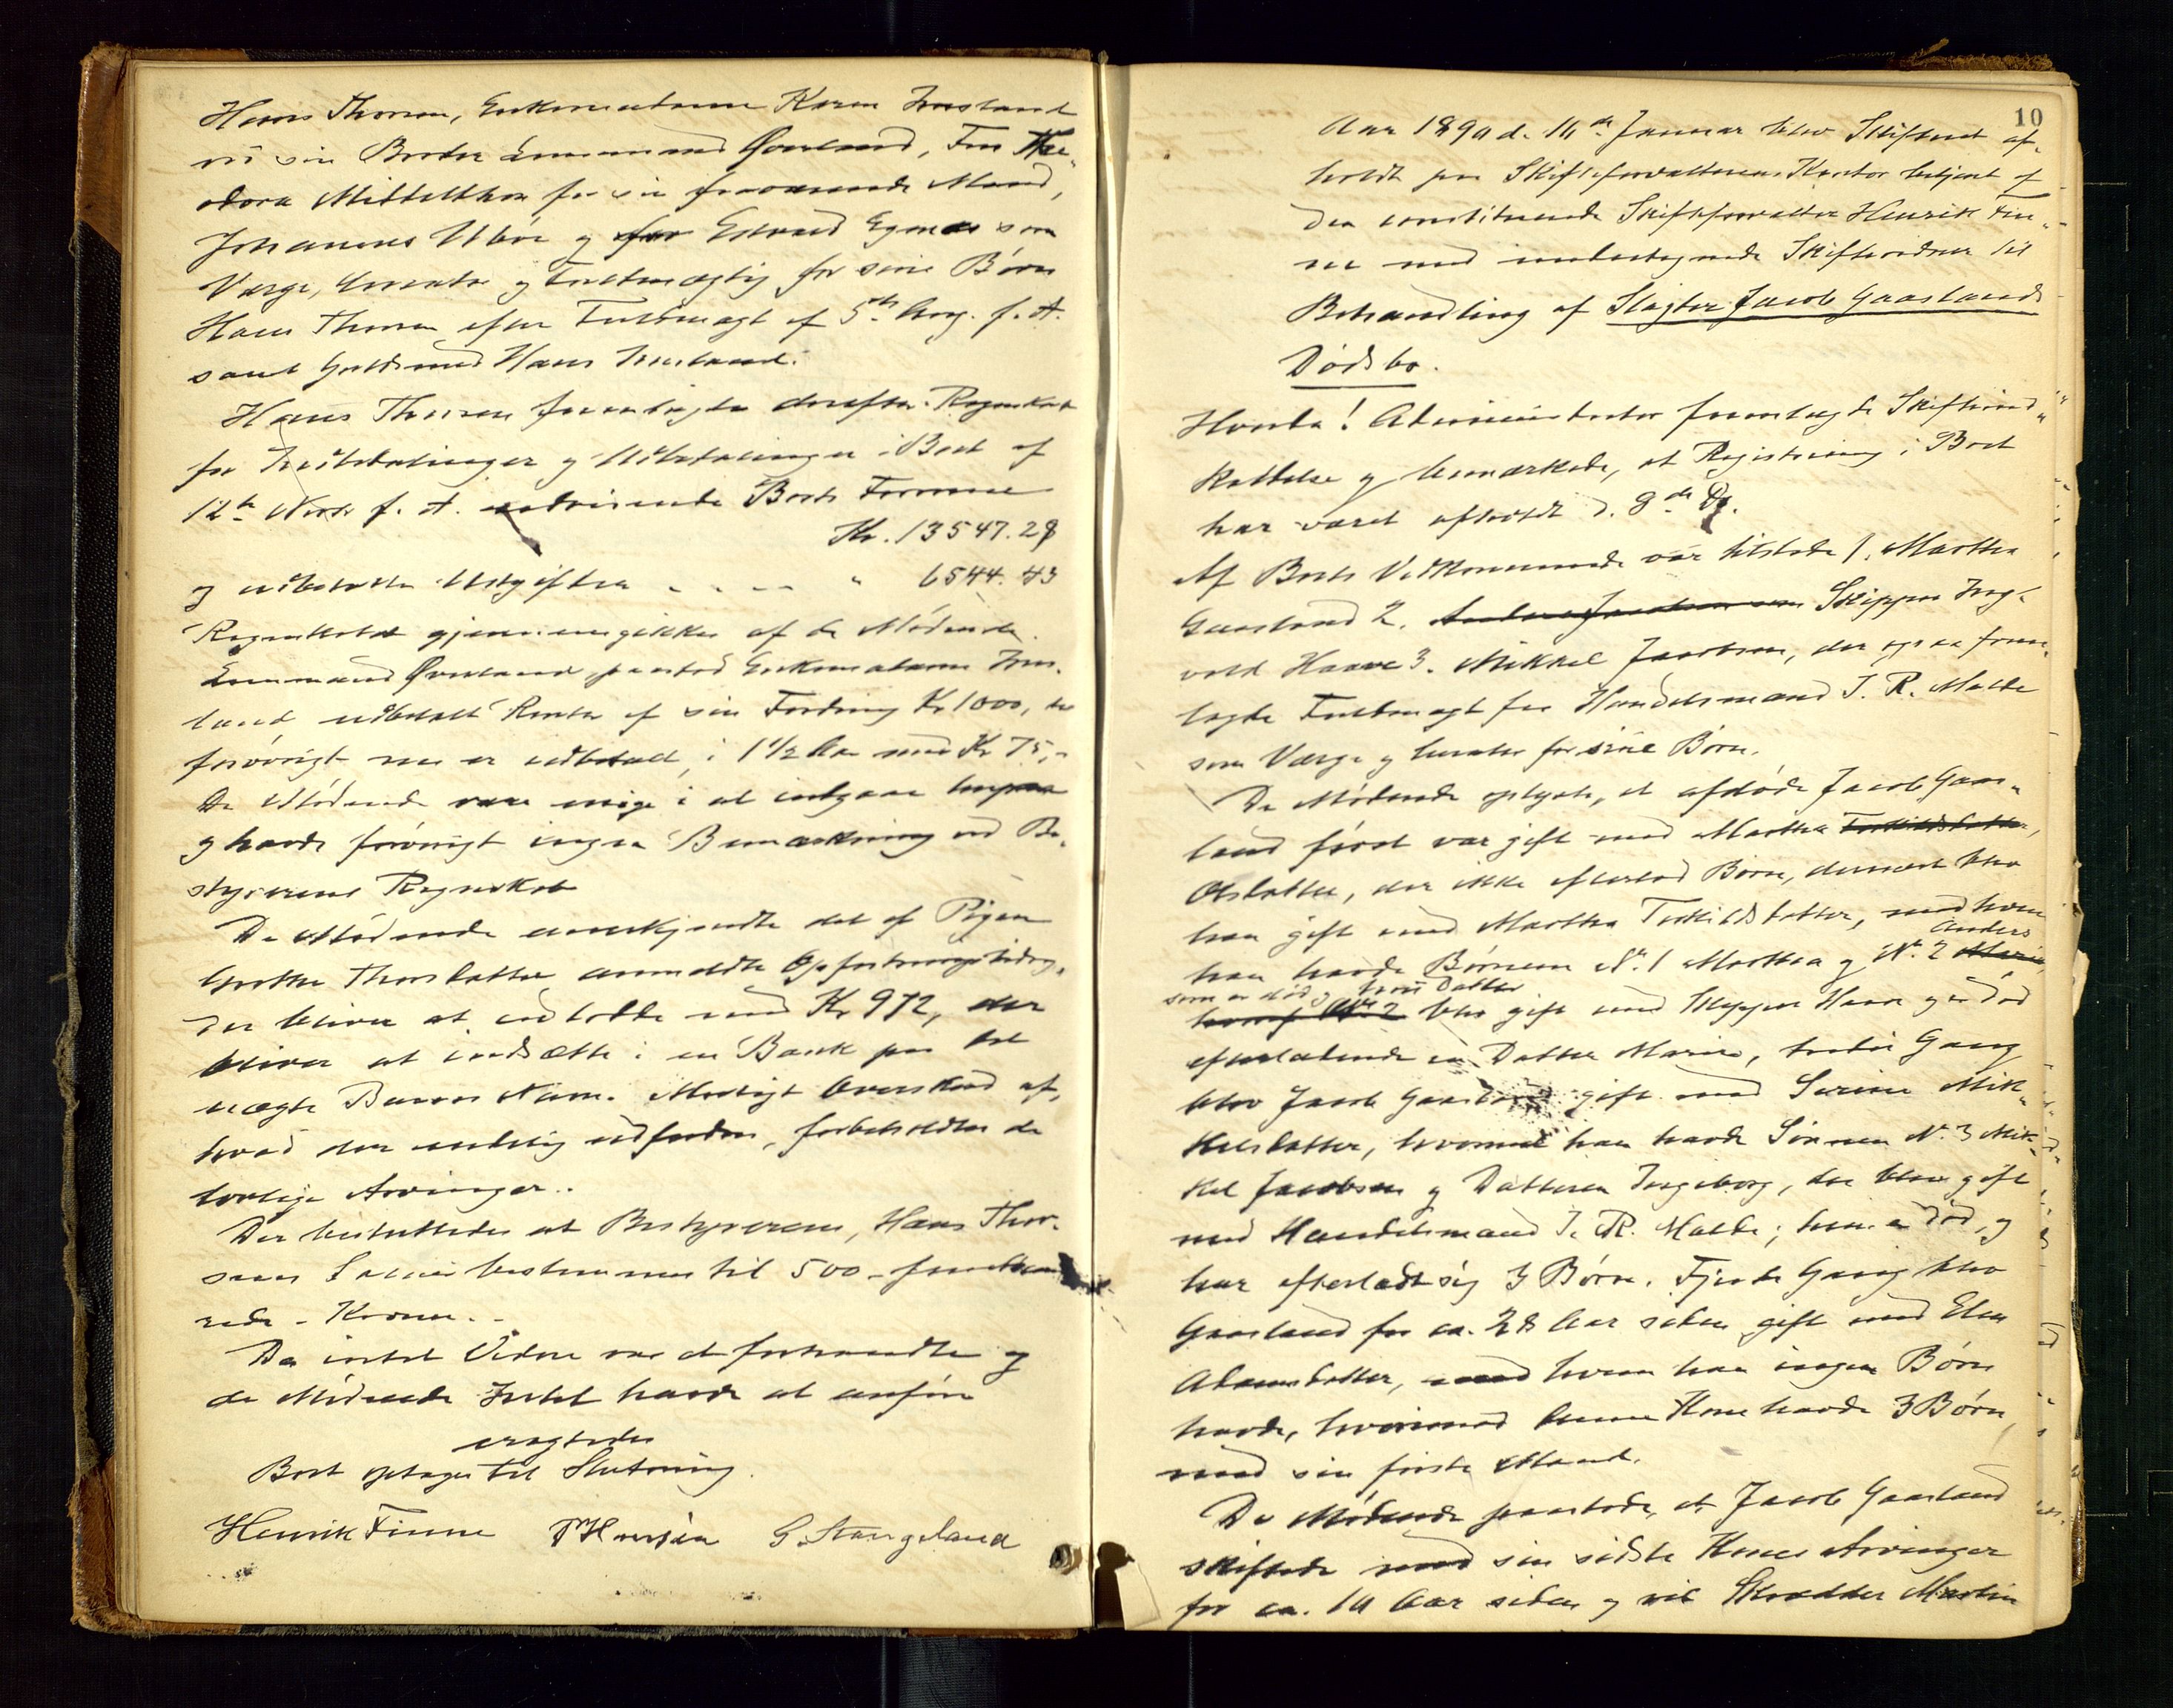 Hans Thorsen, Enkemadame Karen Iversland
ved sin Broder Lensmand Øverland, Fru The-
odora Middelthon for sin fraværende Mand,
Johannes Ubøe og for Edvard Egenes som
Værge, Curator og Fuldmægtig for sine Børn
Hans Thorsen efter Fuldmagt af 5te Aug. f. A.
samt Guldsmed Hans Iversland.
Hans Thorsen fremlagde derefter Regnskab
for Indbetalinger og Udbetalinger i Boet af
12te Novbr f. A. udvisende Boets Formue
Kr. 13547.28
og udbetalte Udgifter - - - - " 6544.43
Regnskabet gjennemgikkes af de Mødende.
Lensmand Øverland paastod Enkemadame Ivers-
land udbetalt Renter af sin Fordring Kr 1000, der
forøvrigt nu er udbetalt, i 1 1/2 Aar med Kr 75,-
De Mødende vare enige i at indgaa herpaa
og havde forøvrigt ingen Bemærkning ved Be-
styrerens Regnskab
De Mødende anerkjendte det af Pigen
Thorsdatter anmeldte Opfostringsbidrag,
der bliver at indbetale med Kr 972, der
bliver at indsætte i en Bank paa det
uægte Barns Navn. Muligt Overskud af,
hvad der endelig udfordres, forbeholdtes de
lovlige Arvinger.
Det besluttedes at Bestyrerens, Hans Thor-
sens Salær bestemmes til 500 - femhund
rede - Kroner.
Da intet Videre var at forhandle og
de Mødende Intet havde at anføre
eragtedes
Boet optages til Slutning.
Henrik Finne T Hversén G. Stangeland
10
Aar 1890 d. 16de Januar blev Skifteret af-
holdt paa Skifteforvalterens Kontor betjent af
den constituerede Skifteforvalter Henrik Fin-
ne med undertegnede Skiftevidner til
Behandling af Slagter Jacob Gaaslands
Dødsbo.
Hvorda! Administrator fremlagde Skifteind-
kaldelse og bemærkede, at Registrering i Boet
har været afholdt d. 8de Ds.
Af Boets Vedkommende var tilstede 1. Martha
Gaasland 2. Skipper Ing-
vald Haave 3. Mikkel Jacobsen, der ogsaa frem-
lagde Fuldmagt fra Handelsmand J. R. Malde
som Værge og Curator for sine Børn.
De Mødende oplyste, at afdøde Jacob Gaas-
land først var gift med Martha Torkildsdatter,
Olsdatter, der ikke efterlod Børn, dernæst blev
han gift med Martha Torkildsdatter, med hvem
Anders
han havde Børnene No. 1 Martha og No. 2 Marie,
som er død og hvis Datter
hvoraf No 2 blev gift med Skipper Haave og er død
efterladende en Datter Marie, tredie Gang
blev Jacob Gaasland gift med Serine Mik-
kelsdatter, hvormed han havde Sønnen No. 3 Mik-
kel Jacobsen og Datteren Ingeborg, der blev gift
med Handelsmand J. R. Malde; hun er død, og
har efterladt sig 3 Børn. Fjerde Gang blev
Gaasland for ca. 28 Aar siden gift med Elen
Adamsdatter, med hvem han ingen Børn
havde, hvorimod denne Kone havde 3 Børn
med sin første Mand.
De Mødende paastode, at Jacob Gaasland
skiftede med sin sidste Kones Arvinger
for ca. 10 Aar siden og vil Skrædder Martin